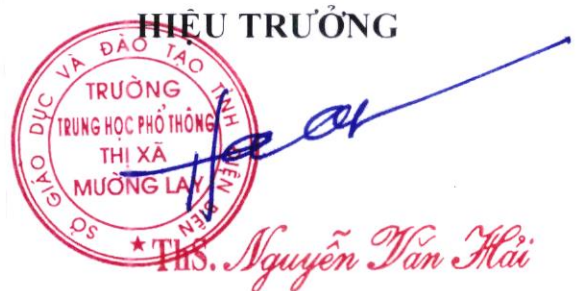 HIỆU TRƯỞNG
SỞ GIÁO DỤC VÀ ĐÀO TẠO TỈNH ĐIỆN BIÊN
TRƯỜNG
TRUNG HỌC PHỔ THÔNG
THỊ XÃ
MƯỜNG LAY
★
ThS. Nguyễn Văn Hải